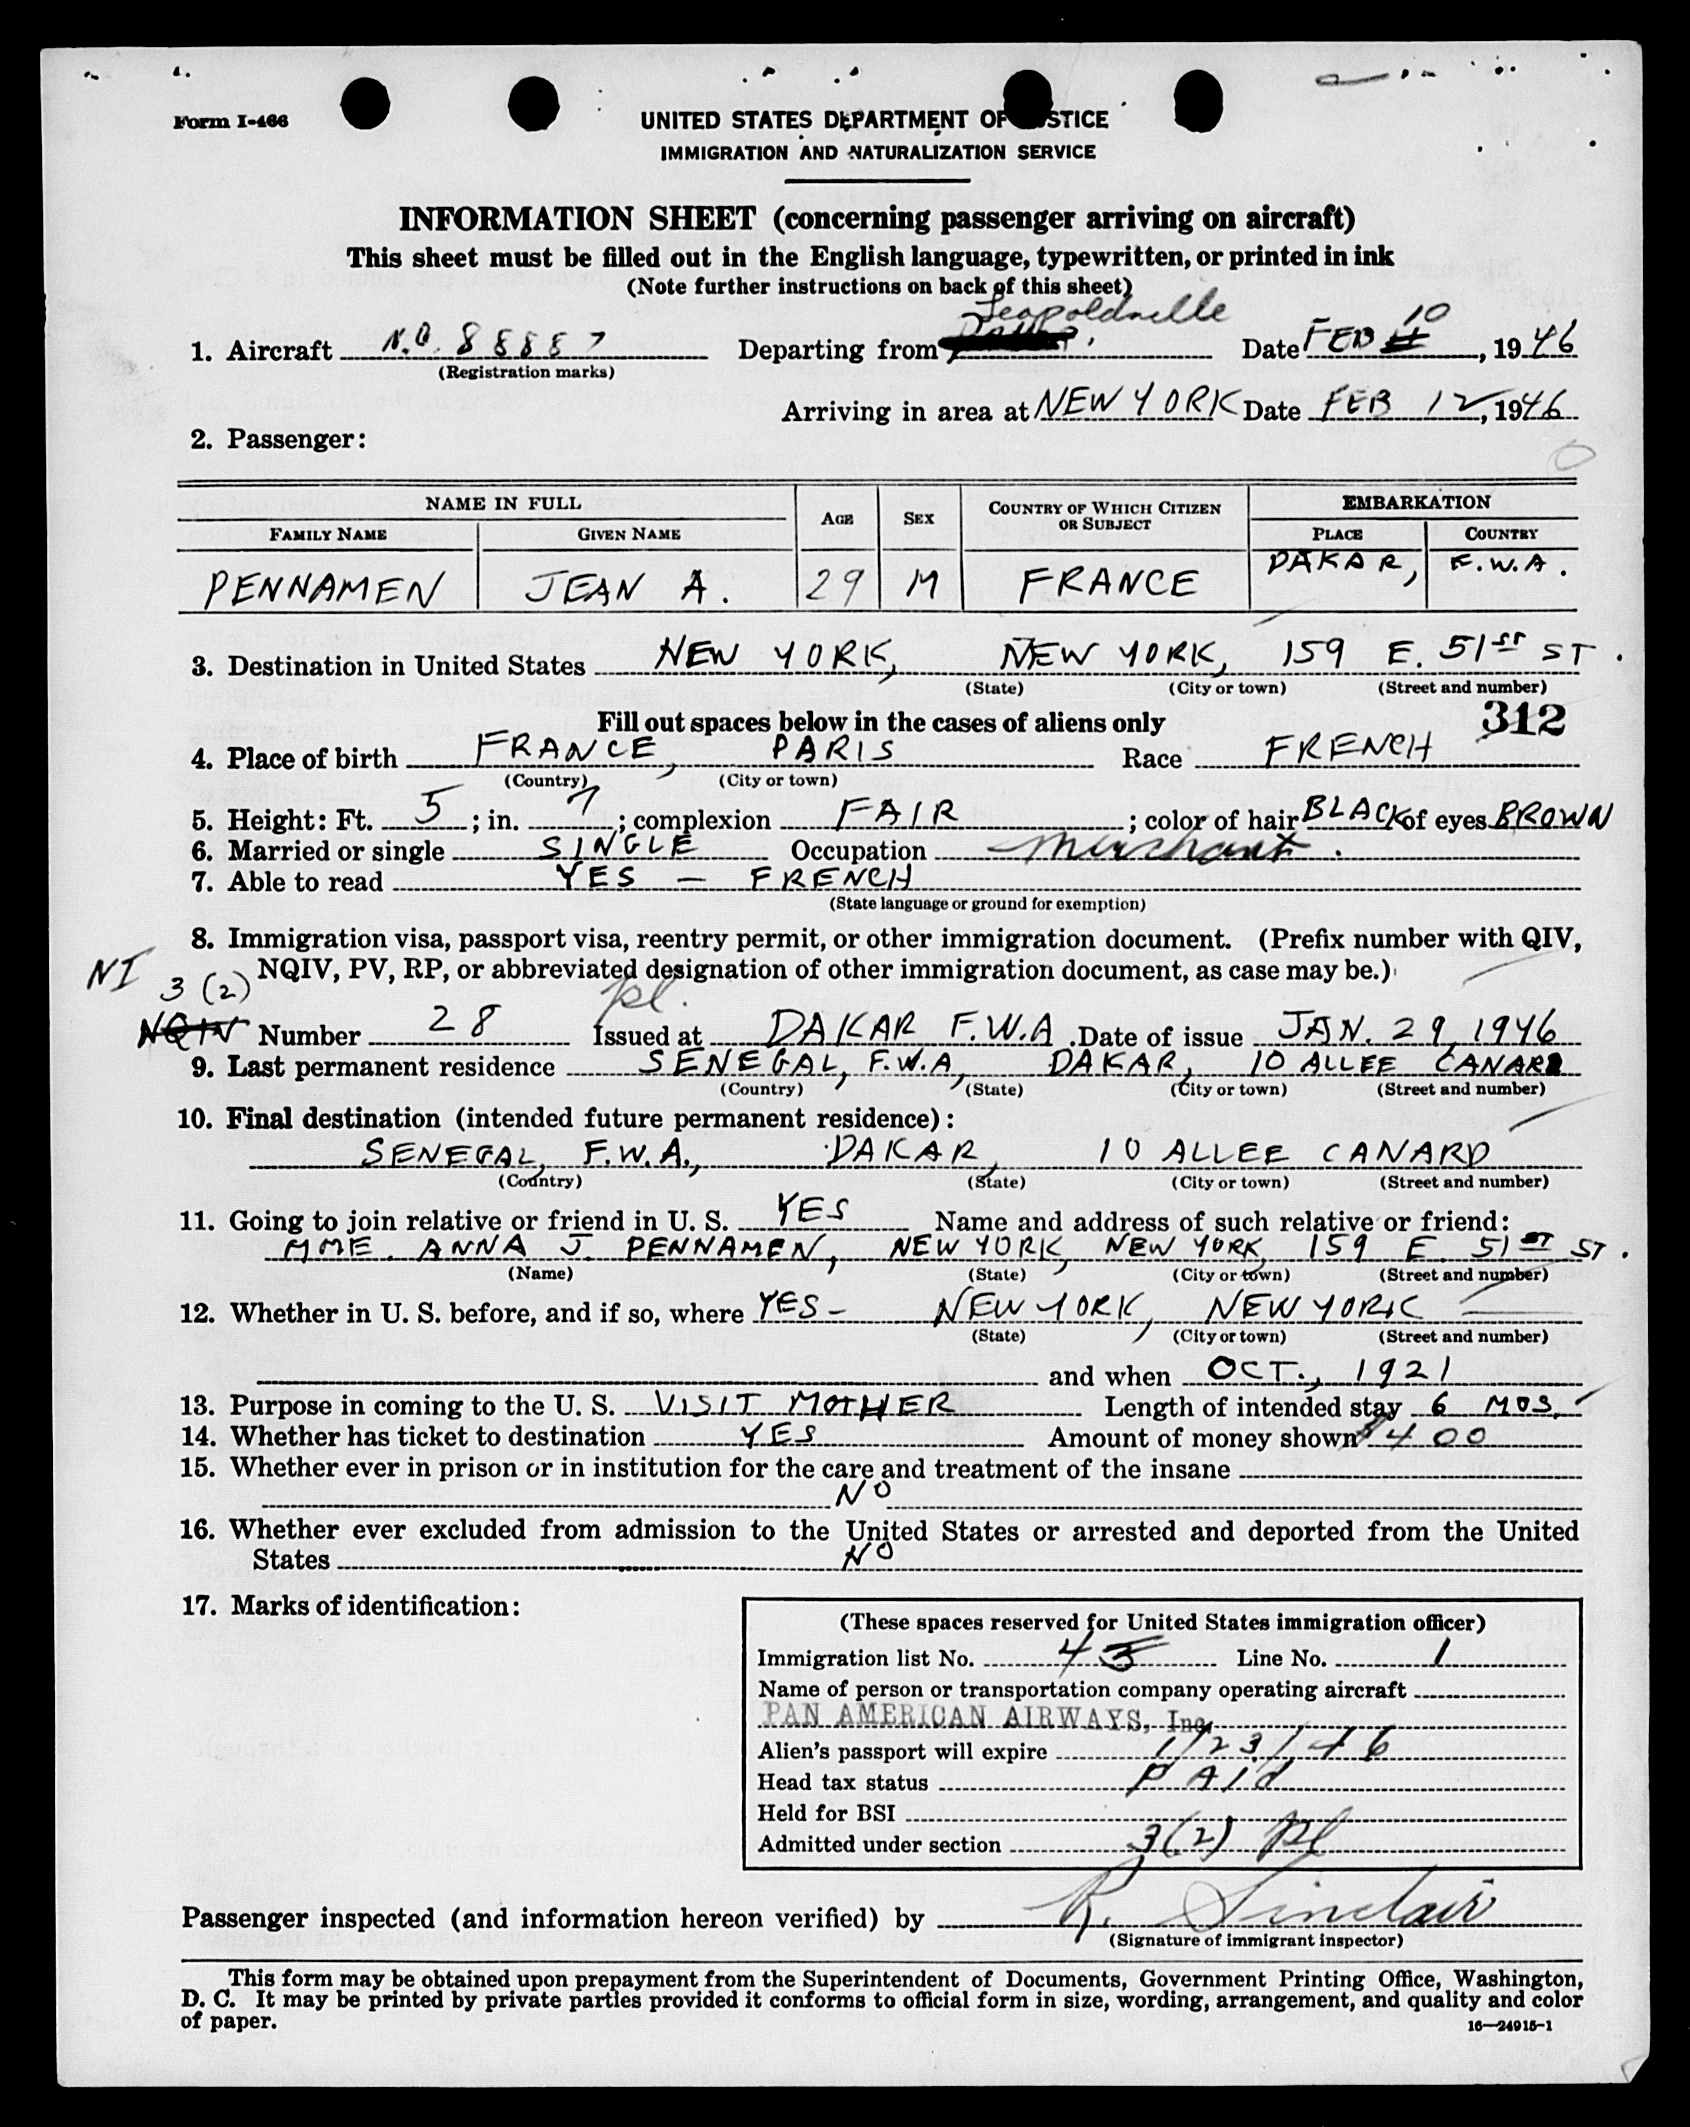 Form I-466
UNITED STATES DEPARTMENT OF JUSTICE
IMMIGRATION AND NATURALIZATION SERVICE
INFORMATION SHEET (concerning passenger arriving on aircraft)
This sheet must be filled out in the English language, typewritten, or printed in ink
(Note further instructions on back of this sheet)
Leopoldville
1. Aircraft N.C. 88887 Departing from Date FEB 10, 1946
(Registration marks)
Arriving in area at NEW YORK Date FEB 12, 1946
2. Passenger:
NAME IN FULL AGE SEX COUNTRY OF WHICH CITIZEN OR SUBJECT EMBARKATION
FAMILY NAME GIVEN NAME PLACE COUNTRY
PENNAMEN JEAN A. 29 M FRANCE DAKAR, F.W.A.
3. Destination in United States NEW YORK, NEW YORK, 159 E. 51ST ST.
(State) (City or town) (Street and number)
Fill out spaces below in the cases of aliens only 312
4. Place of birth FRANCE, PARIS Race FRENCH
(Country) (City or town)
5. Height: Ft. 5; in. 7; complexion FAIR; color of hair BLACK of eyes BROWN
6. Married or single SINGLE Occupation Merchant.
7. Able to read YES — FRENCH
(State language or ground for exemption)
8. Immigration visa, passport visa, reentry permit, or other immigration document. (Prefix number with QIV,
NI 3 (2) NQIV, PV, RP, or abbreviated designation of other immigration document, as case may be.)
pl.
NQIV Number 28 Issued at DAKAR F.W.A. Date of issue JAN. 29, 1946
9. Last permanent residence SENEGAL, F.W.A, DAKAR, 10 ALLEE CANARD
(Country) (State) (City or town) (Street and number)
10. Final destination (intended future permanent residence):
SENEGAL, F.W.A., DAKAR, 10 ALLEE CANARD
(Country) (State) (City or town) (Street and number)
11. Going to join relative or friend in U. S. YES Name and address of such relative or friend:
MME. ANNA J. PENNAMEN, NEW YORK, NEW YORK, 159 E. 51ST ST.
(Name) (State) (City or town) (Street and number)
12. Whether in U. S. before, and if so, where YES - NEW YORK, NEW YORK
(State) (City or town) (Street and number)
and when OCT., 1921
13. Purpose in coming to the U. S. VISIT MOTHER Length of intended stay 6 MOS.
14. Whether has ticket to destination YES Amount of money shown $400
15. Whether ever in prison or in institution for the care and treatment of the insane
NO
16. Whether ever excluded from admission to the United States or arrested and deported from the United
States NO
17. Marks of identification:
(These spaces reserved for United States immigration officer)
Immigration list No. 45 Line No. 1
Name of person or transportation company operating aircraft
PAN AMERICAN AIRWAYS, Inc.
Alien's passport will expire 1/23/46
Head tax status PAID
Held for BSI
Admitted under section 3(2) pl
Passenger inspected (and information hereon verified) by R. Sinclair
(Signature of immigrant inspector)
This form may be obtained upon prepayment from the Superintendent of Documents, Government Printing Office, Washington,
D. C. It may be printed by private parties provided it conforms to official form in size, wording, arrangement, and quality and color
of paper.
16—24915-1